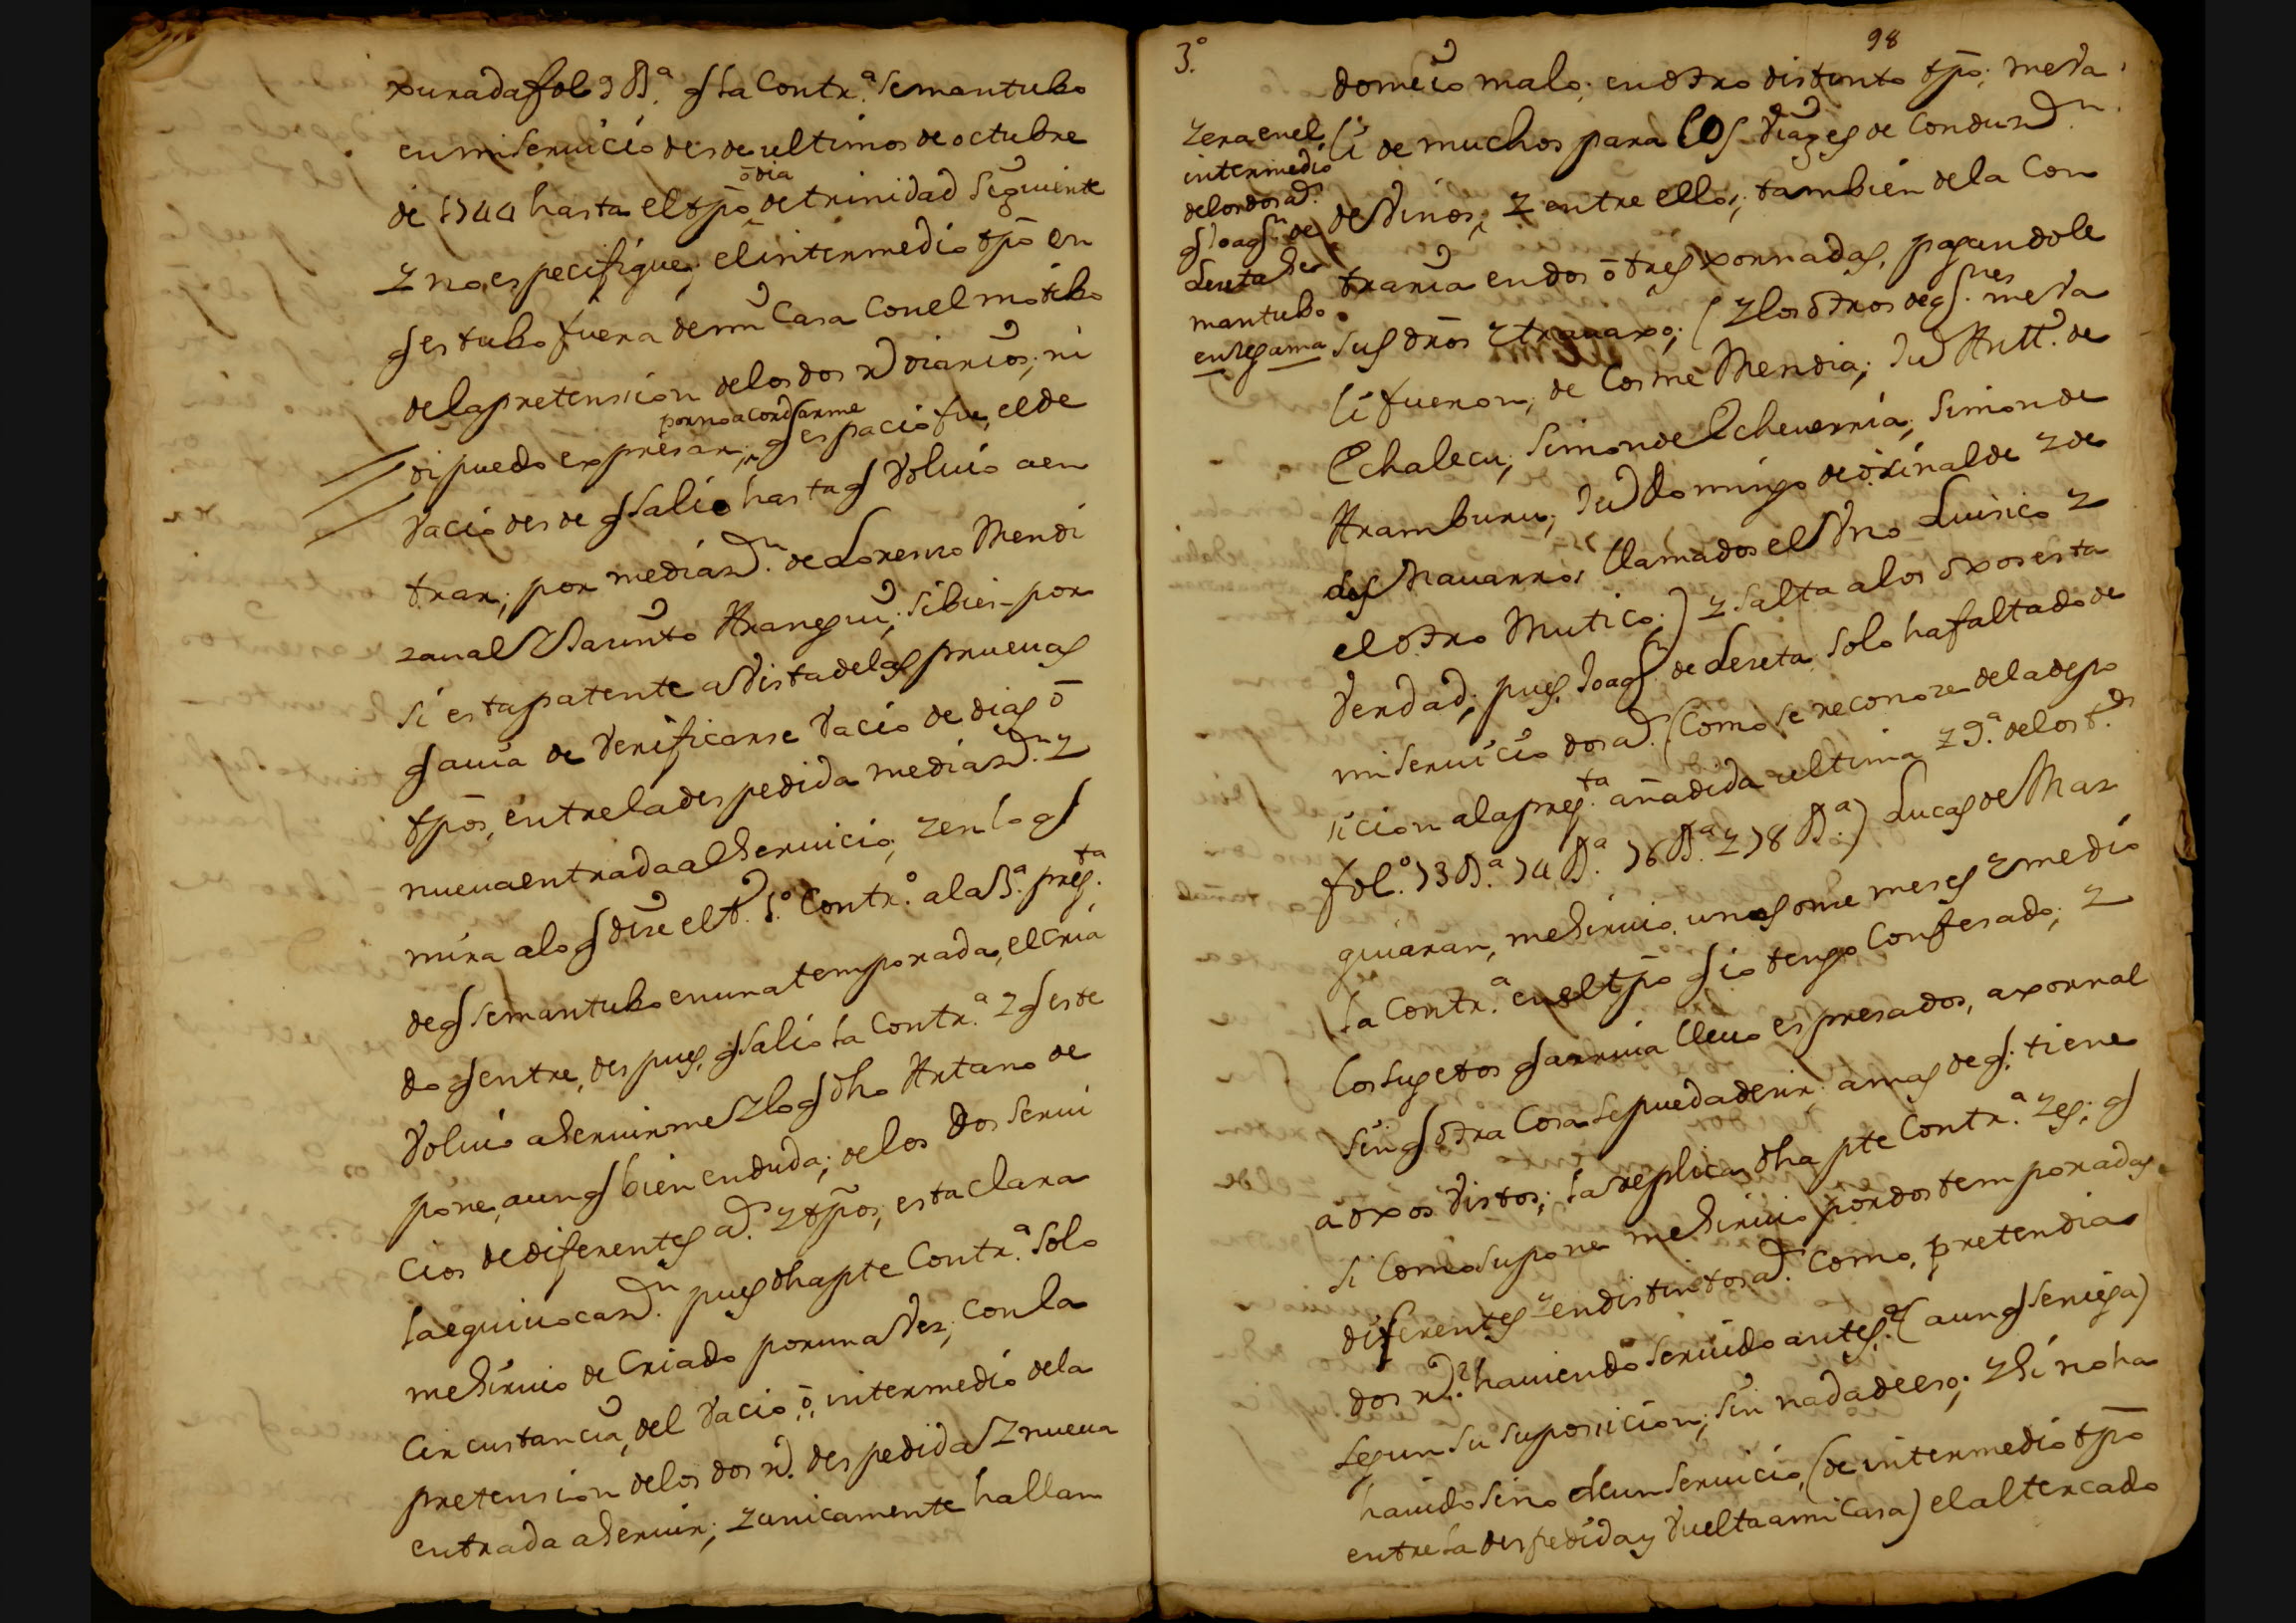 xurada fol 9 B.ª q la Contr.ª se mantubo
en mi seruicio desde ultimos de octubre
de 1744 hasta el tpõ õ dia de trinidad siguiente
y no especifique, el intermedio tpõ en
q estubo fuera de mi Casa con el motibo
de la pretension de los dos rˢ diarios, ni
di puedo expresar, por no acordarme q espacio fue, el de
vacio desde q salio hasta q voluio a en
trar, por mediazᵒⁿ de Lorenzo Mendi
zaual y Jazinto Aranegui, si bien por
si esta patente a vista de las prueuas
q auia de verificarse vacio de dias õ
tpõs, entre la despedida mediazᵒⁿ y
nueua entrada al seruicio, y en lo q
mira a lo q dize el tº 1.º Contr.º a la 3.ª preg.ᵗᵃ
de q se mantubo en una temporada, el cria
do q entre, despues, q salio la Contr.ª y q este
voluio a seruirme y lo q dho Artano de
pone, aunq bien en duda, de los dos serui
cios de diferentes aˢ y tpõs, esta clara
la equiuocazᵒⁿ pues dha pte Contr.ª solo
me siruio de Criado por una vez, con la
circustancia, del vacio, õ, intermedio de la
pretension de los dos rˢ despedida y nueua
entrada a seruir; y unicamente hallan
3º
98
domecio malo; en otro distinto tpõ; me va
li de muchos para los viages de Conduzᵒⁿ
de vinos, y entre ellos, tambien de la Con
traria en dos õ tres xornadas, pagandole
sus dros y trauaxo; (y los otros de qⁿᵉˢ me va
li fueron, de Cosme Mendia, Juº Antt.º de
Echalecu, Simon de Echeuerria, Simon de
Aramburu, Juº Domingo de oxinalde y de
dos Nauarros llamados el vno Luisico y
el otro Mutico;) y salta a los oxos esta
verdad, pues Joaqⁿ de Lereta solo ha faltado de
mi seruicio dos aˢ (Como se reconoze de la depo
sicion a la preg.ᵗᵃ añadida ultima y 9.ª de los t.ˢ
fol.º 73 B.ª 74 B.ª 76 B.ª y 78 B.ª) Lucas de Maz
quiaran, me siruio, unos onze meses y medio
la Contr.ª en el tpõ q io tengo Confesado; y
los sugetos q arriua lleuo espresados, a xornal
sin q otra Cosa se pueda dezir, a mas de q; tiene
a oxos vistos; la replica dha pte Contr.ª y es; q
si como supone me siruio por dos temporadas
diferentes y en distintos aˢ Como, pretendia
dos rˢ hauiendo seruido antes, (aunq se niega)
segun su suposicion; sin nada de eso; y si no ha
hauido sino de un seruicio, (de intermedio tpõ
entre la despedida y vuelta a mi Casa) el altercado
y era en el
intermedio
de los dos aˢ
q Joaqⁿ de
Lereta se
mantubo
en Legama